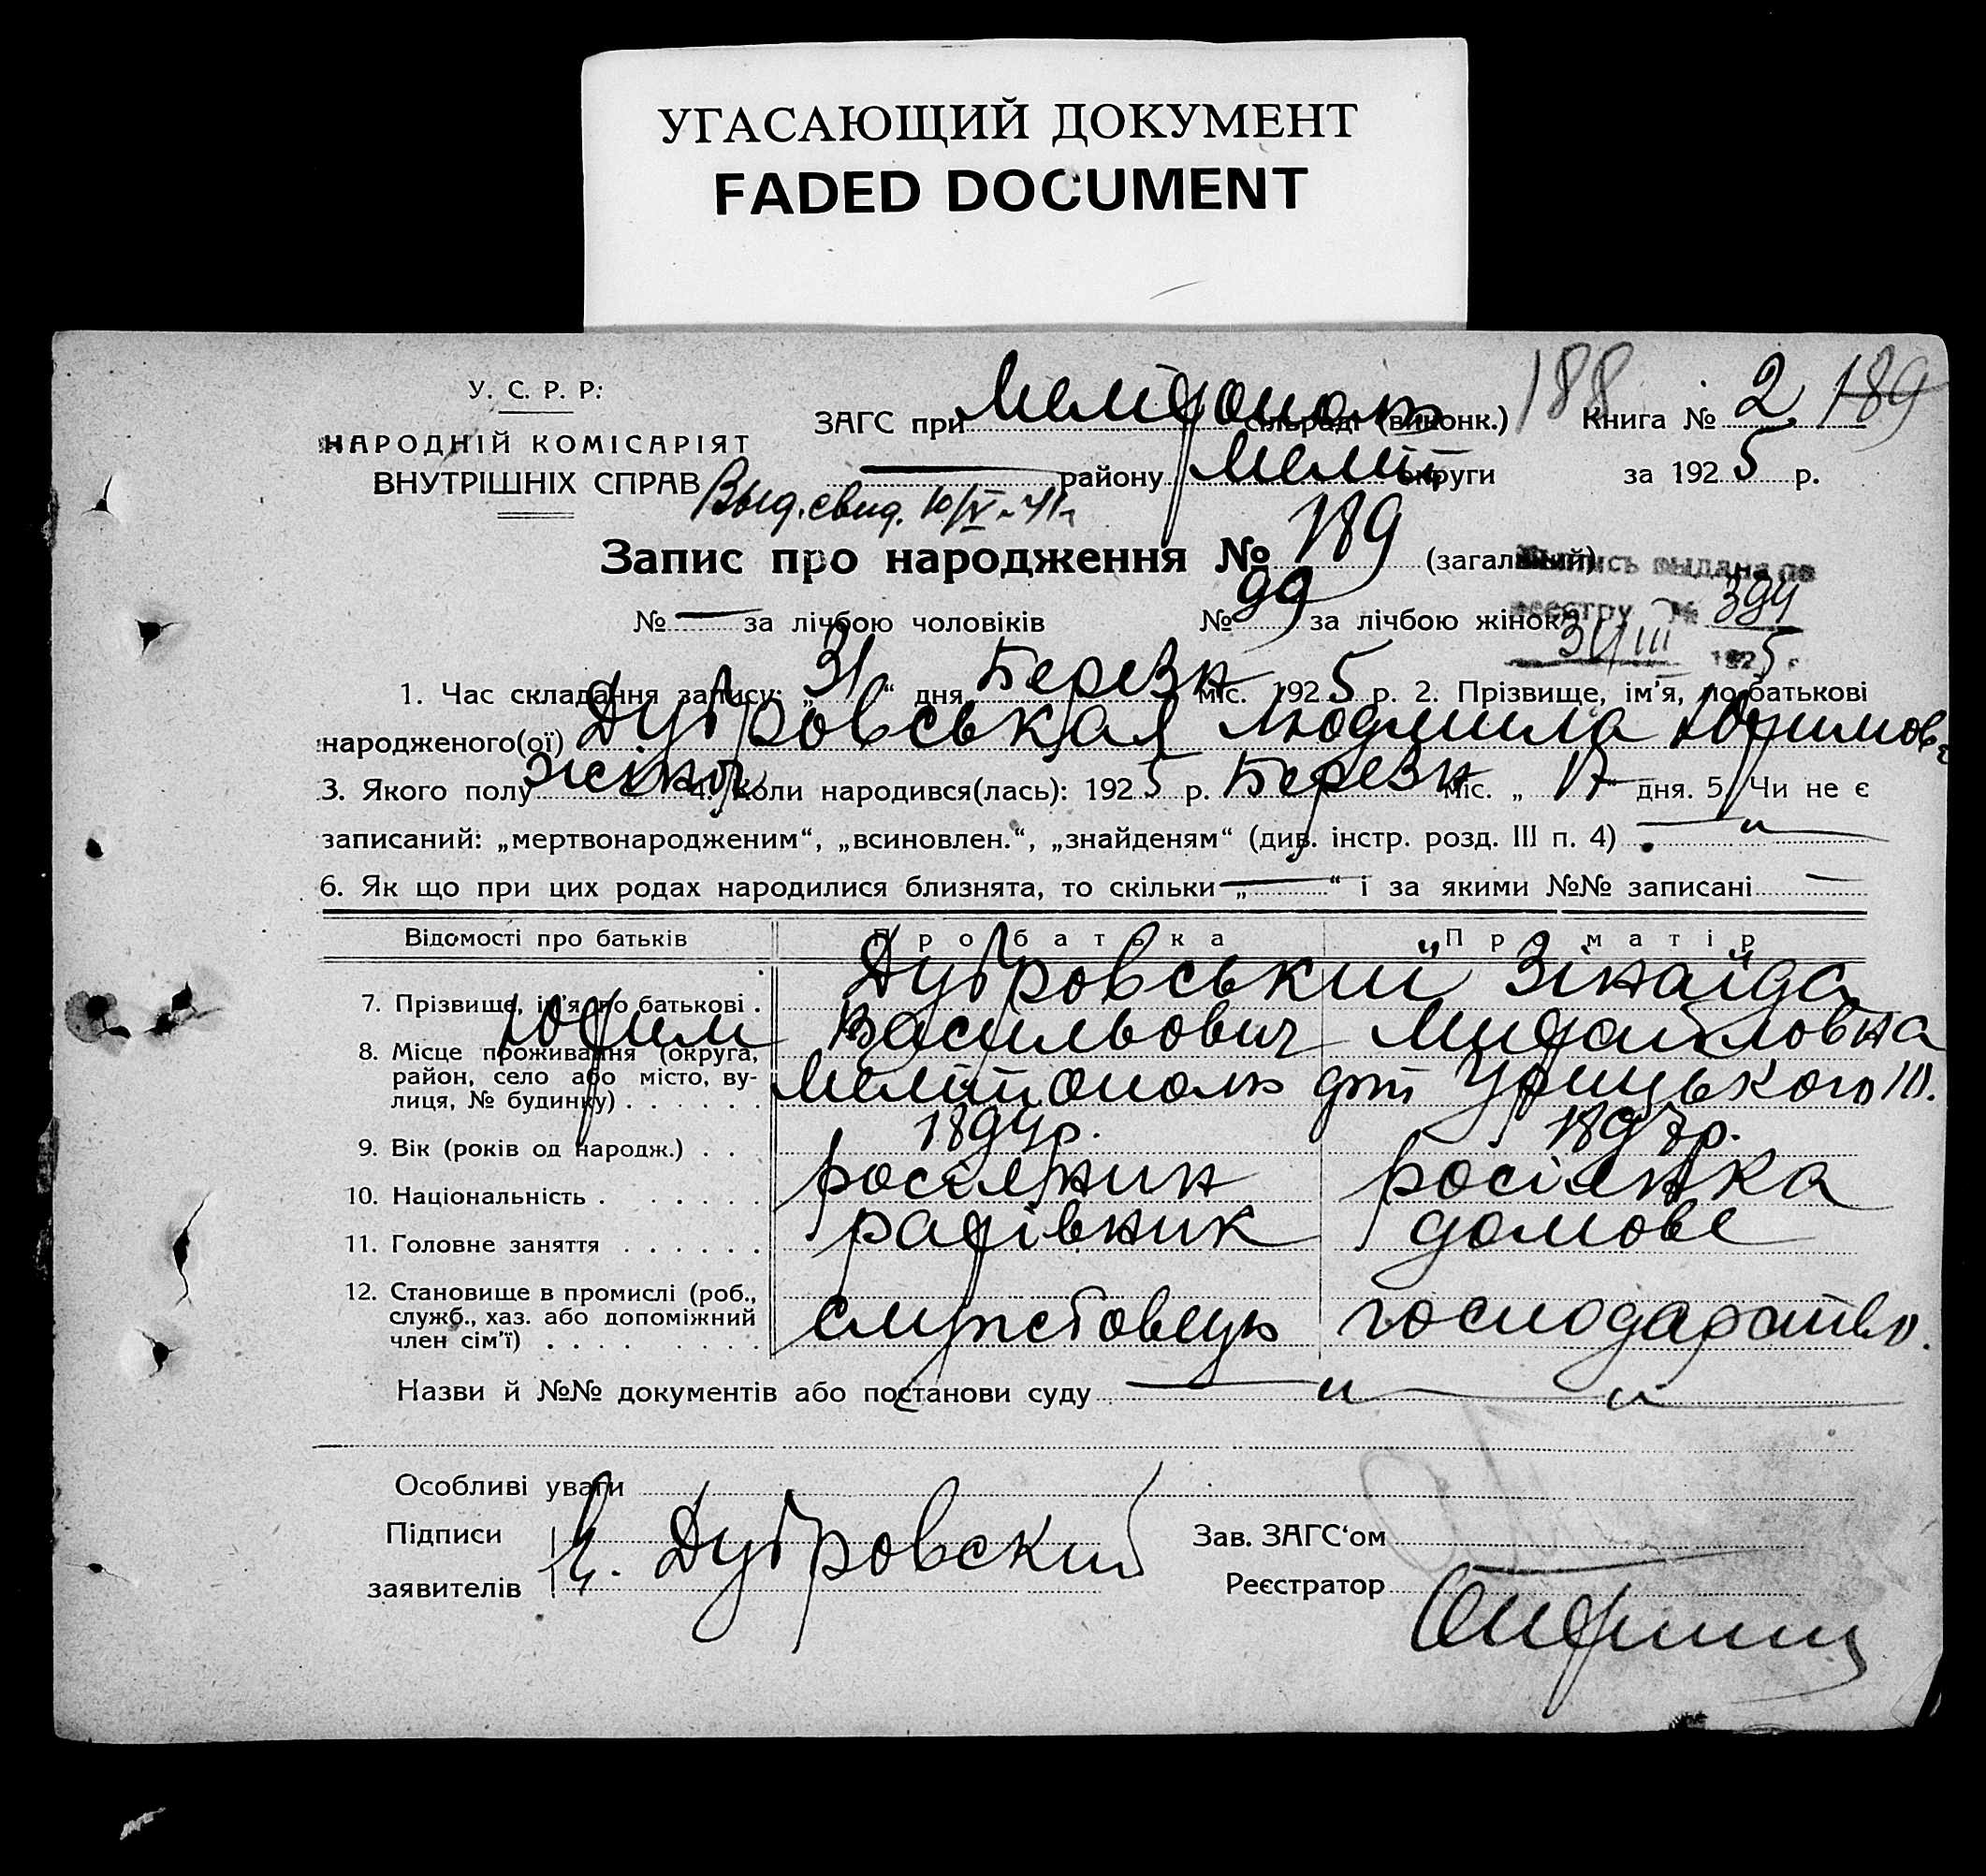 УГАСАЮЩИЙ ДОКУМЕНТ
FADED DOCUMENT
У. С. Р. Р.
НАРОДНІЙ КОМІСАРІЯТ
ВНУТРІШНІХ СПРАВ
ЗАГС при Мелітополь сільраді (виконк.) 188 Книга № 2 189
— району Меліт округи за 1925 р.
Выд. свид. 10/IV-41г.
Запис про народження № 189 (загальний)
Выпись выдана по
реестру № 394
31/III 1925 г.
№ — за лічбою чоловіків № 99 за лічбою жінок
1. Час складання запису: „31“ дня Березн міс. 1925 р. 2. Прізвище, ім'я, по батькові
народженого(ої) Дубровськая Людмила Юфимов
3. Якого полу жіноч 4. Коли народився(лась): 1925 р. Березн міс. „17“ дня. 5. Чи не є
записаний: „мертвонародженим“, „всиновлен.“, „знайденям“ (див. інстр. розд. III п. 4) — „ —
6. Як що при цих родах народилися близнята, то скільки „—“ і за якими №№ записані —
Відомості про батьків Про батька Про матір
7. Прізвище, ім'я по батькові . Дубровський „ Зінаїда
Юфим Васильович Михайловна
8. Місце проживання (округа,
район, село або місто, ву-
лиця, № будинку) . . . . . . Мелітополь Урицького 10.
9. Вік (років од народж.) . . . 1894р. 1897р.
10. Національність . . . . . . росіянин росіянка
11. Головне заняття . . . . . . домове
12. Становище в промислі (роб.,
служб., хаз. або допоміжний
член сім'ї) . . . . . . . . . службовець господарство.
Назви й №№ документів або постанови суду — „ — „ —
Особливі уваги
Підписи
заявителів Дубровский
Зав. ЗАГС'ом
Реєстратор